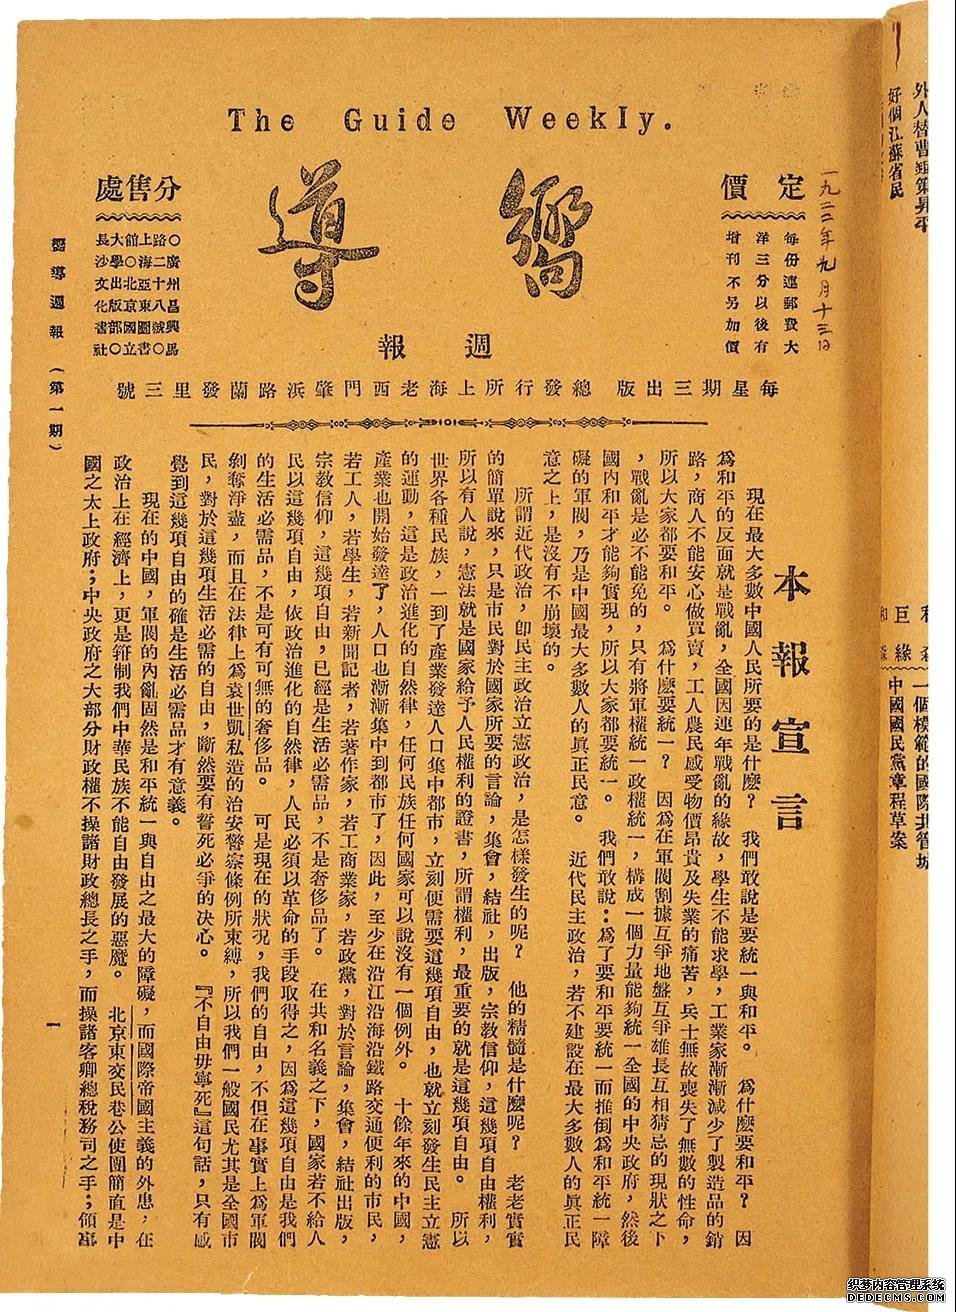 The Guide Weekly.
嚮導
週報
定價
每份連郵費大
洋三分以後有
增刊不另加價
一九二二年九月十三日
分售處
○廣州昌興馬
路二十八號○
上海亞東圖書
館○北京國立
大學出版部○
長沙文化書社
每星期三出版 總發行所上海老西門肇浜路蘭發里三號
本報宣言
現在最大多數中國人民所要的是什麽? 我們敢說是要統一與和平。 爲什麽要和平? 因
爲和平的反面就是戰亂,全國因連年戰亂的緣故,學生不能求學,工業家漸漸減少了製造品的銷
路,商人不能安心做買賣,工人農民感受物價昂貴及失業的痛苦,兵士無故喪失了無數的性命,
所以大家都要和平。 爲什麽要統一? 因爲在軍閥割據互爭地盤互爭雄長互相猜忌的現狀之下
,戰亂是必不能免的,只有將軍權統一政權統一,構成一個力量能夠統一全國的中央政府,然後
國內和平才能夠實現,所以大家都要統一。 我們敢說:爲了要和平要統一而推倒爲和平統一障
礙的軍閥,乃是中國最大多數人的眞正民意。 近代民主政治,若不建設在最大多數人的眞正民
意之上,是沒有不崩壞的。
所謂近代政治,卽民主政治立憲政治,是怎樣發生的呢? 他的精髓是什麽呢? 老老實實
的簡單說來,只是市民對於國家所要的言論,集會,結社,出版,宗教信仰,這幾項自由權利,
所以有人說,憲法就是國家給予人民權利的證書,所謂權利,最重要的就是這幾項自由。 所以
世界各種民族,一到了產業發達人口集中都市,立刻便需要這幾項自由,也就立刻發生民主立憲
的運動,這是政治進化的自然律,任何民族任何國家可以說沒有一個例外。 十餘年來的中國,
產業也開始發達了,人口也漸漸集中到都市了,因此,至少在沿江沿海沿鐵路交通便利的市民,
若工人,若學生,若新聞記者,若著作家,若工商業家,若政黨,對於言論,集會,結社出版,
宗教信仰,這幾項自由,已經是生活必需品,不是奢侈品了。 在共和名義之下,國家若不給人
民以這幾項自由,依政治進化的自然律,人民必須以革命的手段取得之,因爲這幾項自由是我們
的生活必需品,不是可有可無的奢侈品。 可是現在的狀况,我們的自由,不但在事實上爲軍閥
剝奪淨盡,而且在法律上爲袁世凱私造的治安警察條例所束縛,所以我們一般國民尤其是全國市
民,對於這幾項生活必需的自由,斷然要有誓死必爭的决心。 『不自由毋寧死』這句話,只有感
覺到這幾項自由的確是生活必需品才有意義。
現在的中國,軍閥的內亂固然是和平統一與自由之最大的障礙,而國際帝國主義的外患,在
政治上在經濟上,更是箝制我們中華民族不能自由發展的惡魔。 北京東交民巷公使團簡直是中
國之太上政府;中央政府之大部分財政權不操諸財政總長之手,而操諸客卿總稅務司之手;領事
嚮導週報 (第一期)
一
好個江蘇省民
巨緣
一個模範的國際共管城
中國國民黨章程草案
织梦内容管理系统
DEDECMS.COM